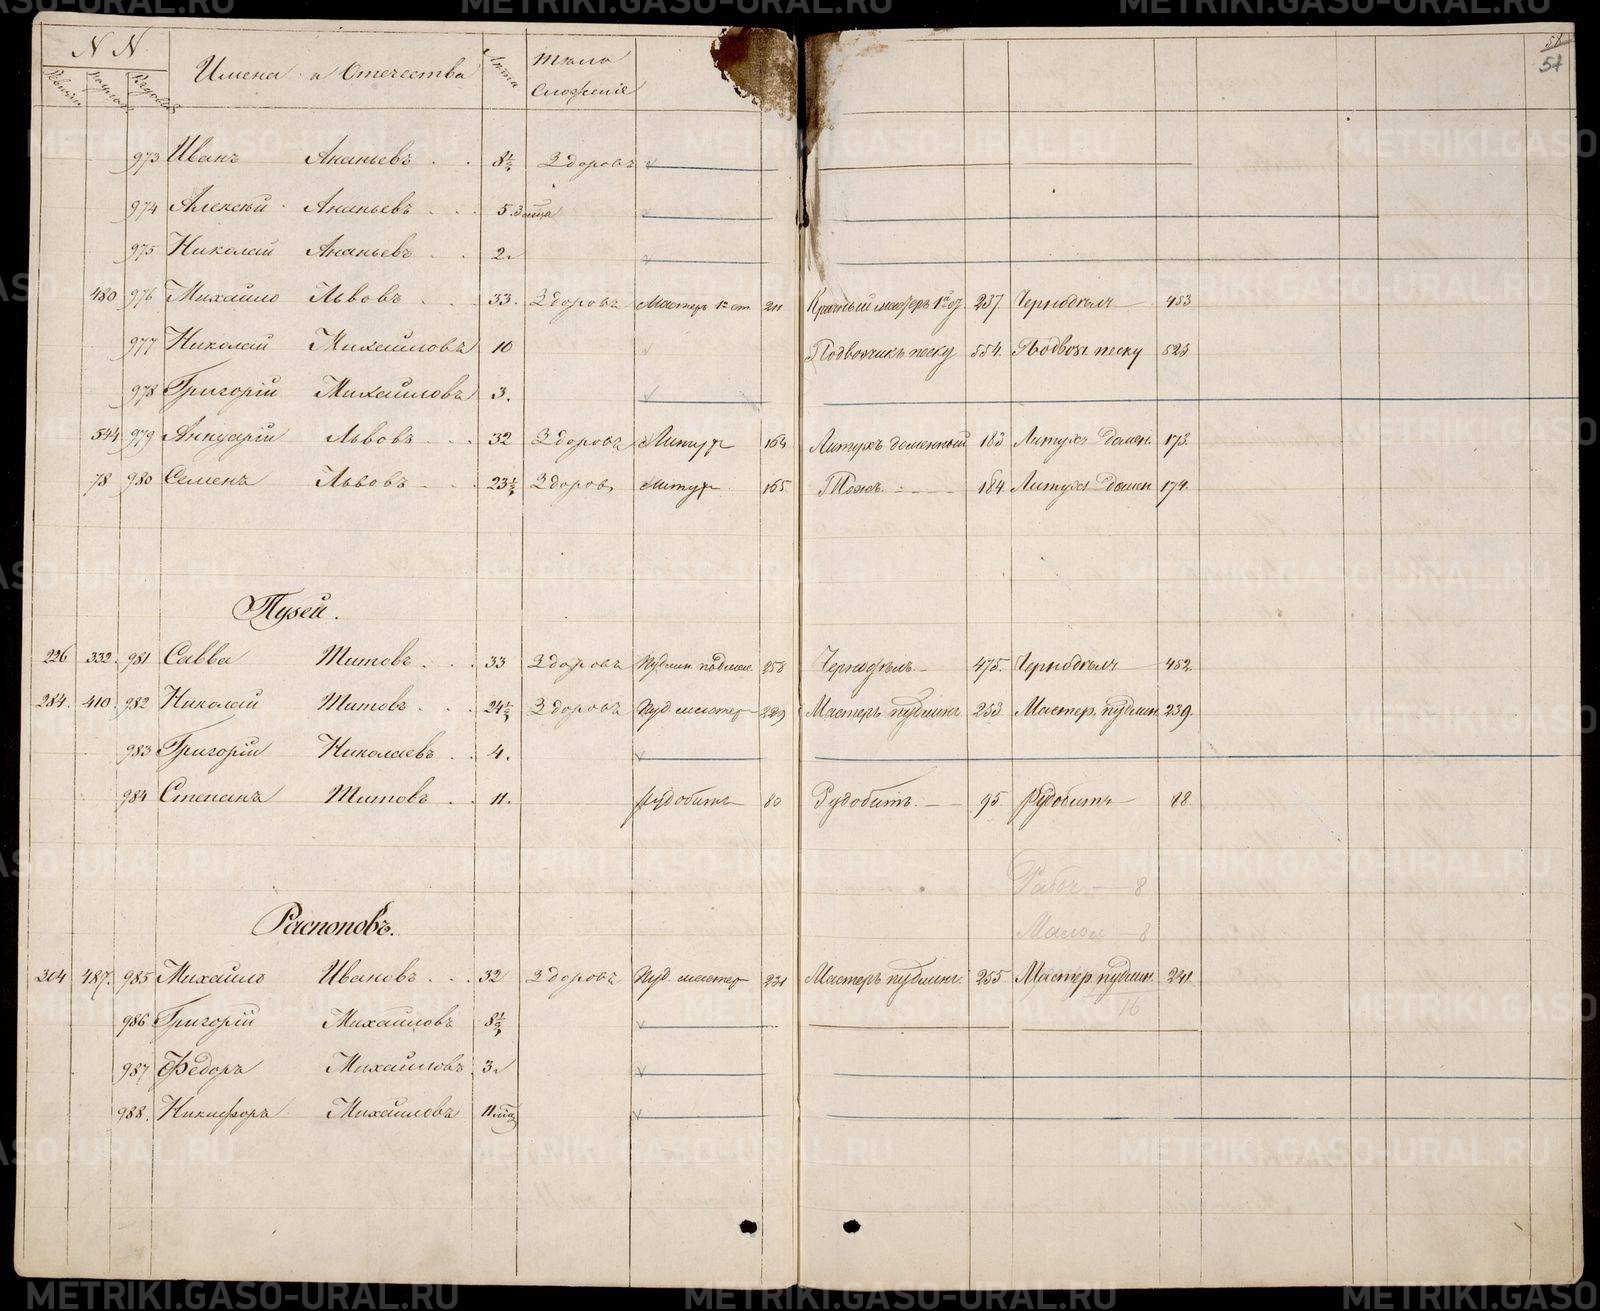 N N Имена и Отечества Лѣта Тѣло
Сложенiе
58
57
973 Иванъ Ананьевъ 8½ Здоровъ
974 Алексѣй Ананьевъ 5.3 мца
975 Николай Ананьевъ 2.
480 976 Михайло Львовъ 33. Здоровъ Мастеръ 1й ст 211 Кричный мастеръ 1й 237. Чернодѣлъ 453
977 Николай Михайловъ 10 Подвозчикъ песку 554. Подвоз. песку 523.
978 Григорiй Михайловъ 3.
544 979 Аннуарiй Львовъ 32 Здоровъ Литух 164 Литухъ доменный 183 Литухъ домен. 173.
78 980 Семенъ Львовъ 23½ Здоровъ Литух 165 Тожъ. 184. Литухъ домен 174.
Пузеи.
226 332. 981 Савва Титовъ 33 Здоровъ Пудлин. подмас. 258 Чернодѣлъ 475. Чернодѣлъ 452.
284. 410. 982 Николай Титовъ 24½ Здоровъ Пуд. мастер 229 Мастеръ пудлинг. 253. Мастер. пудлин 239.
983 Григорiй Николаевъ 4.
984 Степанъ Титовъ 11. Рудобитъ 80 Рудобитъ. 95 Рудобитъ 88.
Рабоч. — 8
Малол — 8
Распоповъ.
304 487. 985 Михайло Ивановъ 32 Здоровъ Пуд. мастер 231 Мастеръ пудлинг. 255 Мастер. пудлин. 241.
16
986 Григорiй Михайловъ 8½
987 Федоръ Михайловъ 3.
988. Никифоръ Михайловъ 11 мца
METRIKI.GASO-URAL.RU